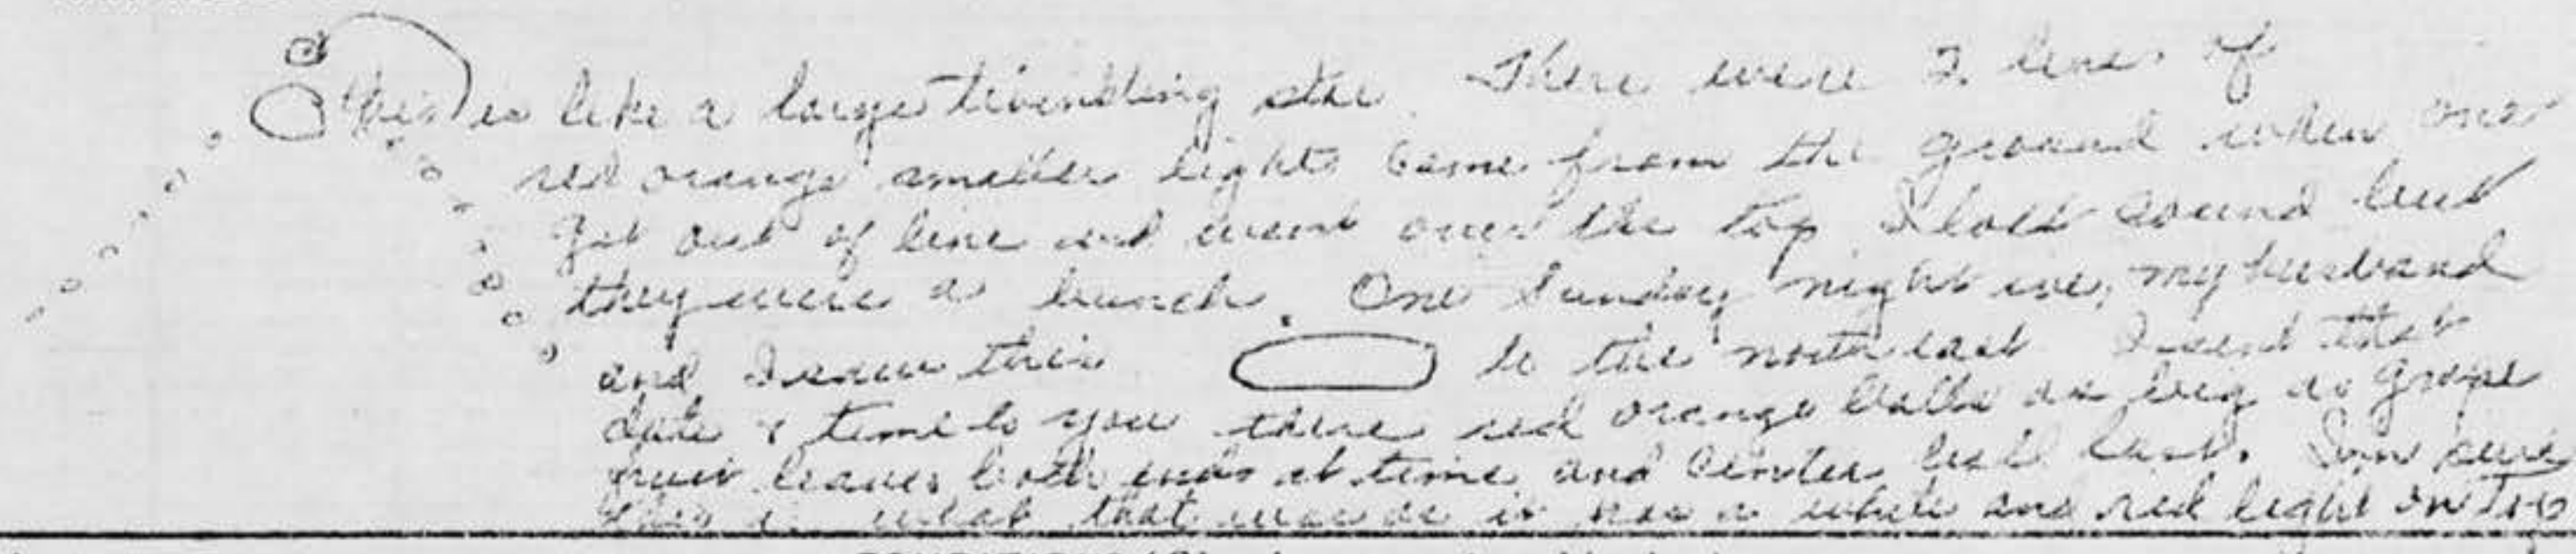 this is like a large twinkling star. There were 2 lines of
red orange smaller lights came from the ground when one
got out of line and went over the top I lost count but
they were a bunch. One Sunday night eve, my husband
and I saw this to the north east I sent that
date & time to you these red orange balls as big as grape
fruit leaves both ends at time and center last. I'm sure
this is what that was as it has a white and red light on top